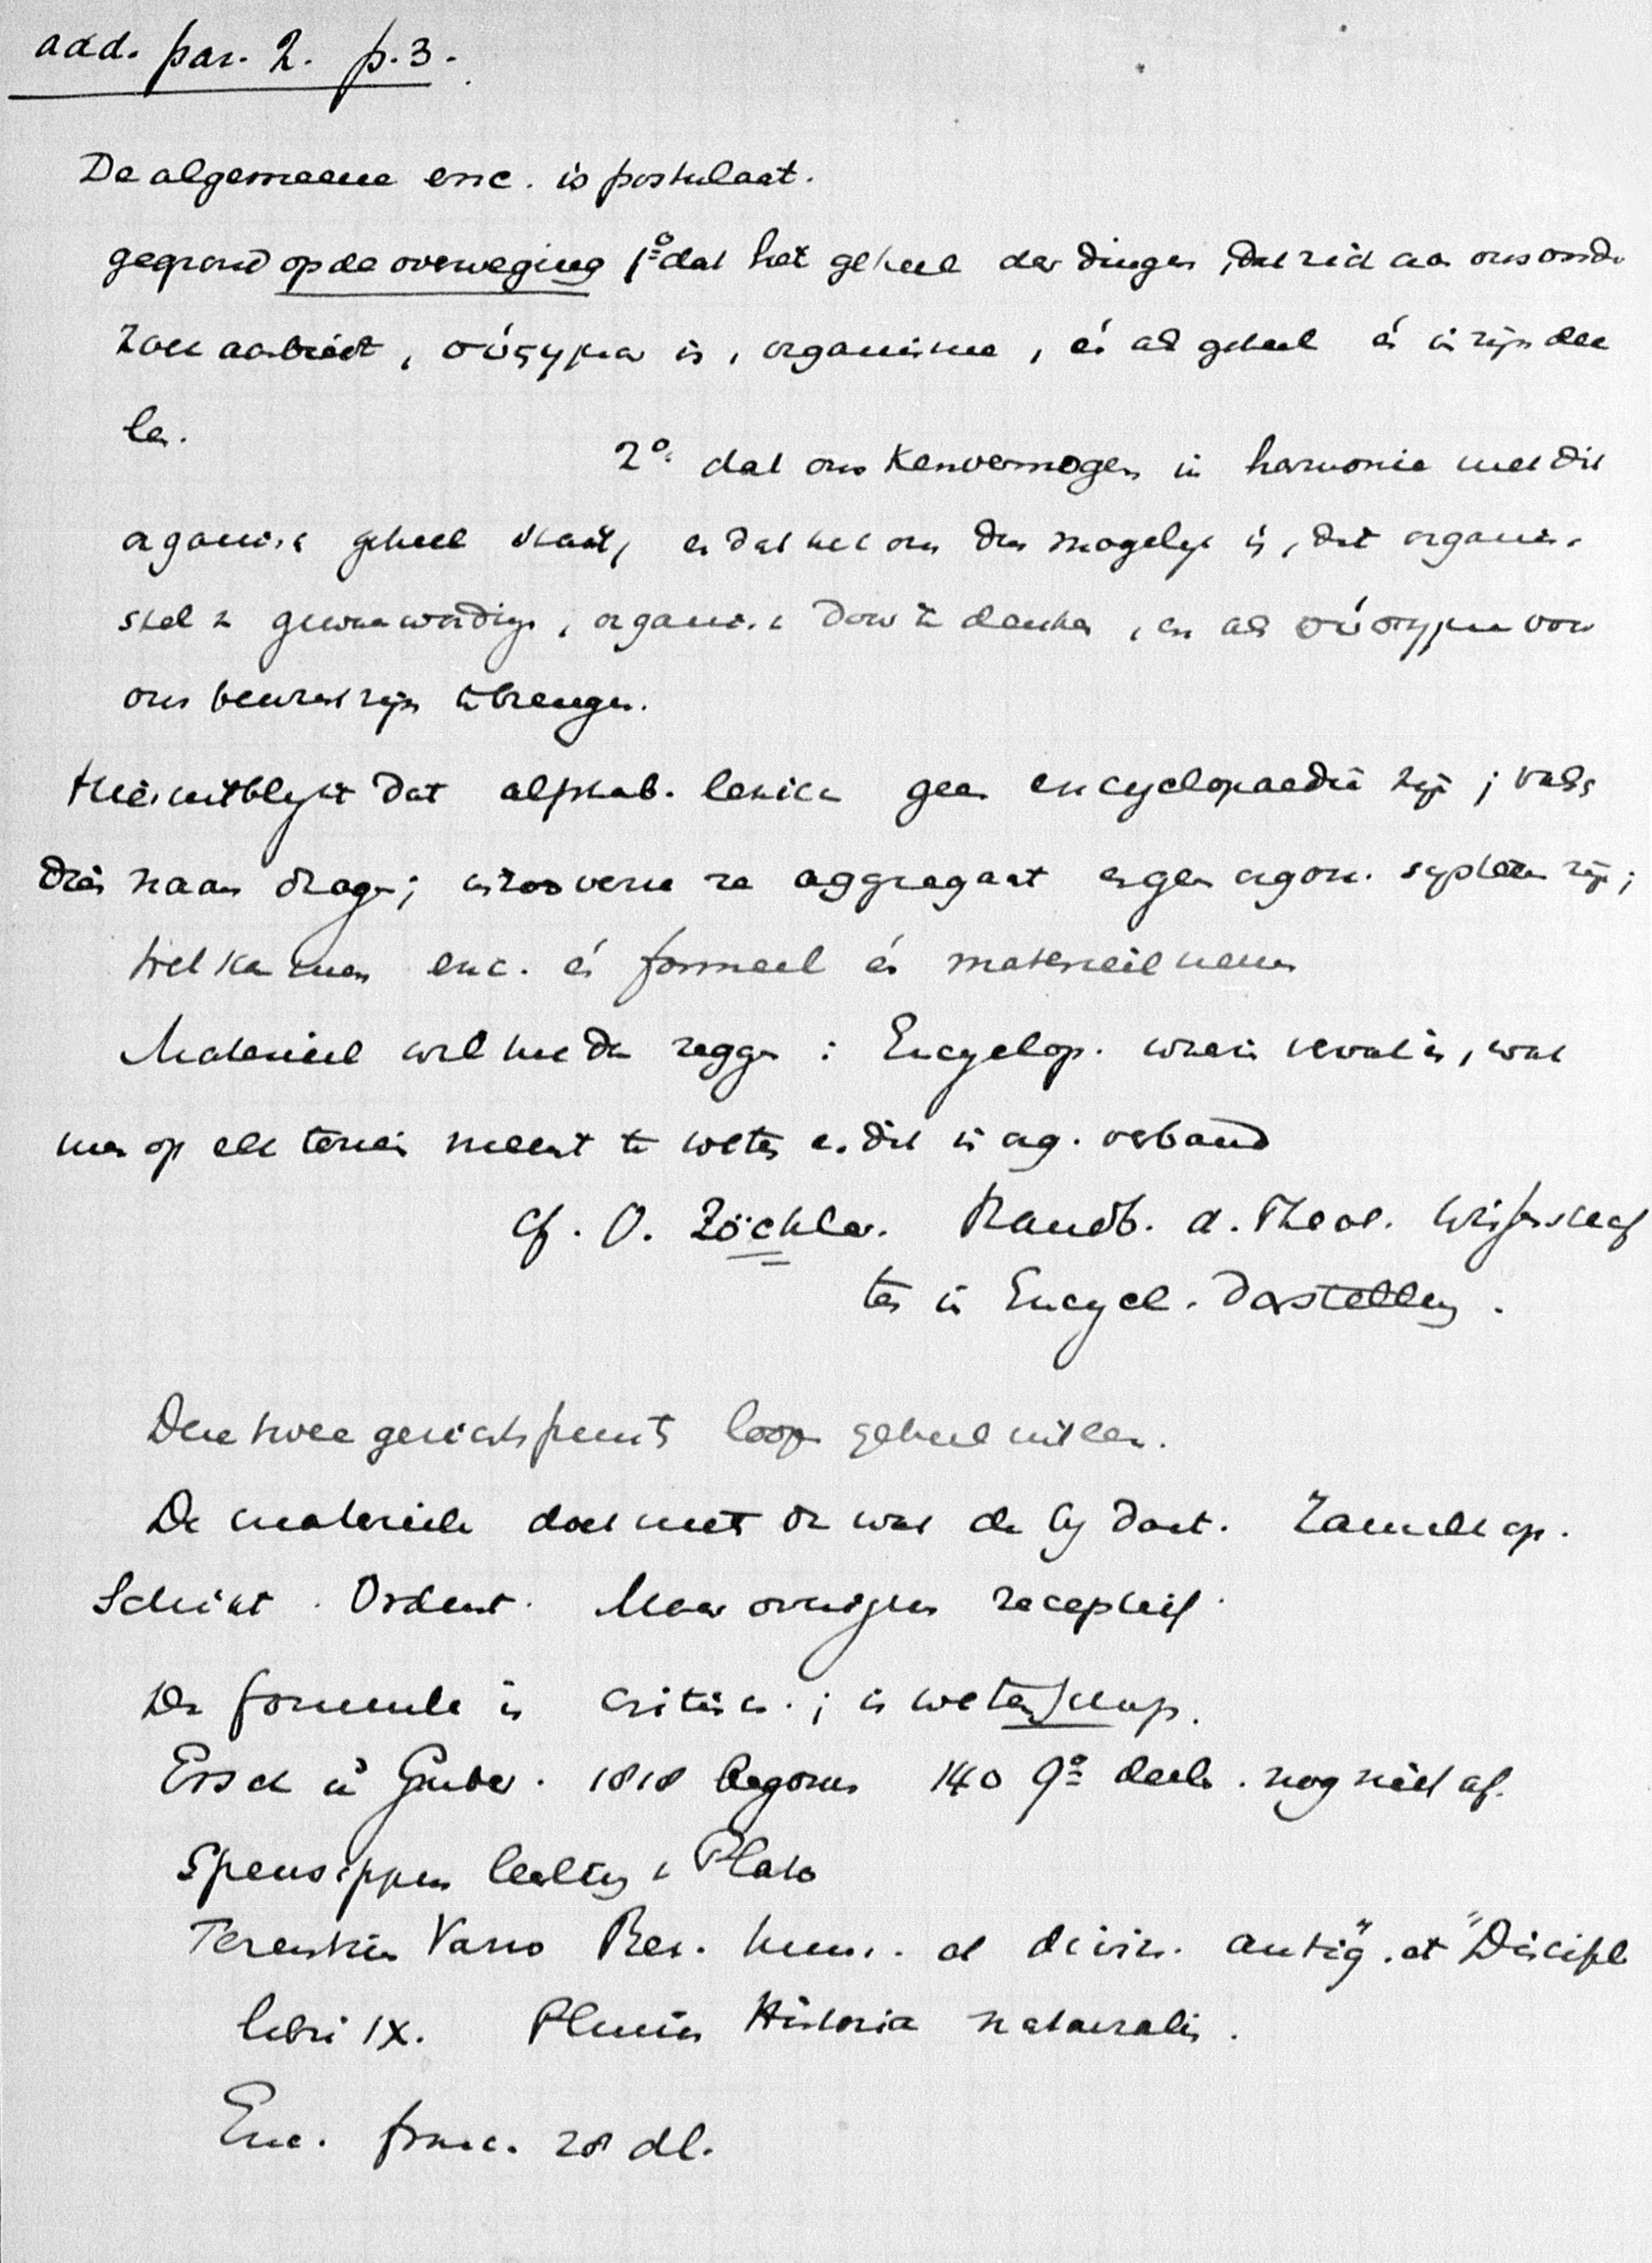 add. par. 2. p. 3.
De algemeene enc. is postulaat.
gegrond op de overweging 1º dat het geheel der dingen, dat zich aan ons onder
zoek aanbiedt, σύστημα is, organisme, én als geheel én in zijn dee
len.
2º. dat ons Kenvermogen in harmonie met dit
organisch geheel staat, en dat het ons dus mogelijk is, dit organisch
stel te, organisch door te denken, en als σύστημα voor
ons bewustzijn te brengen.
Hieruit blijkt dat alphab. lexica geen encyclopaedie zijn; valsch
dien naam dragen; in zooverre ze aggregaat en geen organ. systeem zijn;
Wel kan men enc. én formeel én materieel nemen
Materieel wil het dan zeggen: Encyclop. waarin vervat is, wat
men op elk terrein meent te weten en dit in org. verband
cf. O. Zöckler. Handb. d. Theol. Wissenschaf
ten in Encycl. Darstellung.
Deze twee gezichtspunten loopen geheel uiteen.
De materieele doet niets dan wat de bij doet. Zamelt op.
Schikt. Ordent. Maar overigens receptief.
De formeele is critisch; is wetenschap.
Ersch u Gruber. 1818 begonnen 140 4º deelen. nog niet af.
Speusippus leerling v Plato
Terentius Varro Rer. hum. et divin. antiq. et Discipl
libri IX. Plinius Historia naturalis.
Enc. franc. 28 dl.